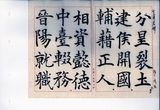 分呈裂玉
建侯開國
輔藉正人
相資懿德
中臺輟務
晉陽就職